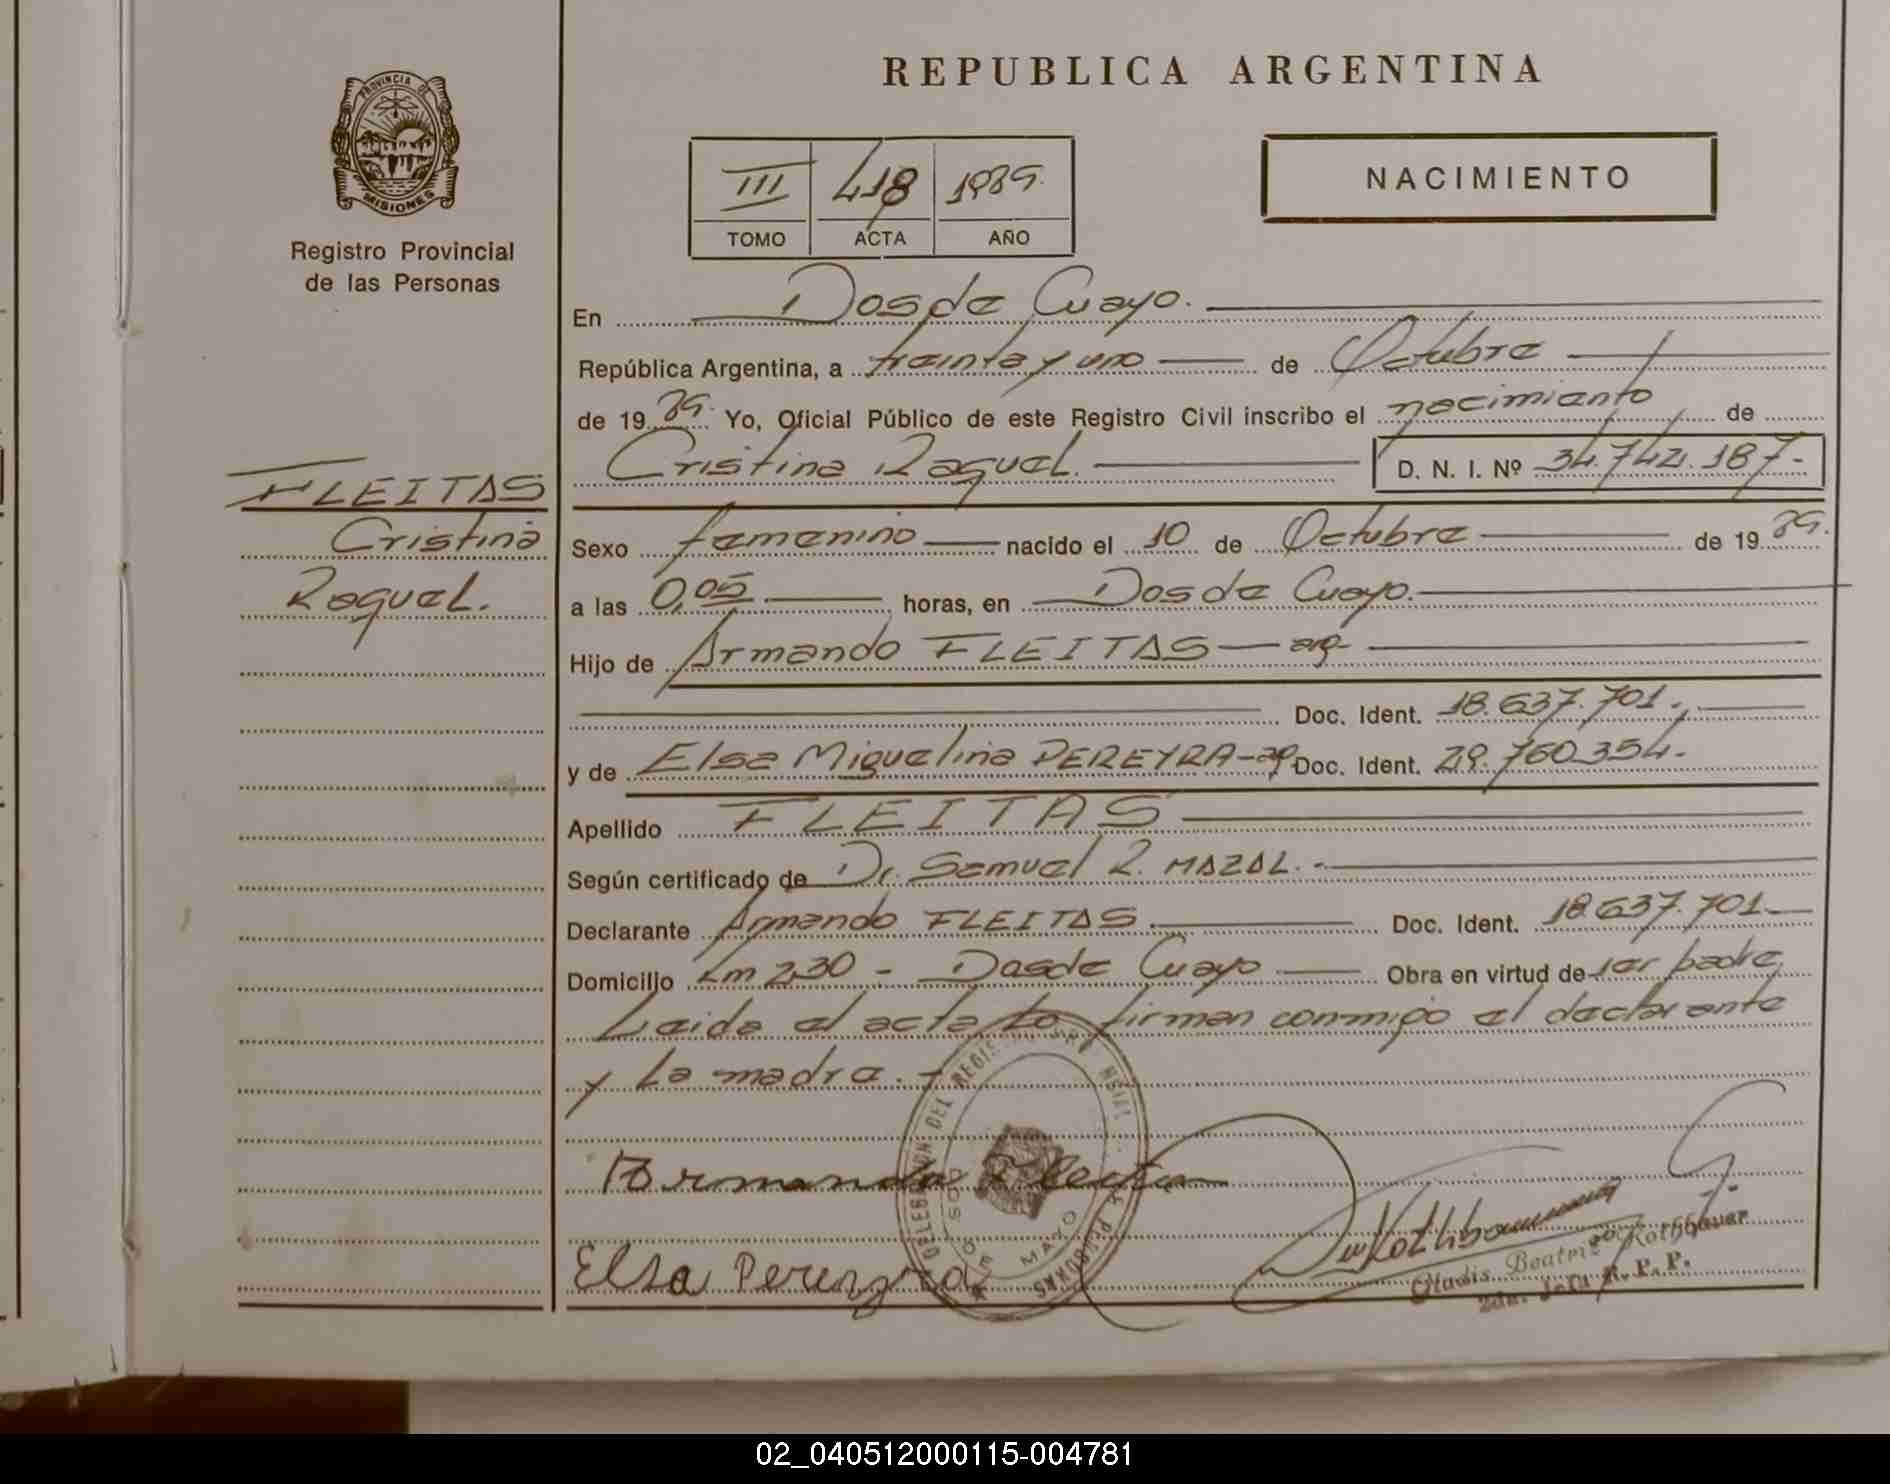 PROVINCIA DE
MISIONES
Registro Provincial
de las Personas
REPUBLICA ARGENTINA
III 418 1989.
TOMO ACTA AÑO
NACIMIENTO
En Dos de Mayo.
República Argentina, a treinta y uno de Octubre
de 19 89. Yo, Oficial Público de este Registro Civil inscribo el nacimiento de
Cristina Raquel. D. N. I. Nº 34.742.187-
FLEITAS
Cristina
Raquel.
Sexo femenino nacido el 10 de Octubre de 19 89.
a las 0,05 horas, en Dos de Mayo.
Hijo de Armando FLEITAS - arg-
Doc. Ident. 18.637.701.
y de Elsa Miguelina PEREYRA-arg Doc. Ident. 29.760.354.
Apellido FLEITAS
Según certificado de Dr. Samuel R. MAZAL.-
Declarante Armando FLEITAS. Doc. Ident. 18.637.701
Domicilio Km 230 - Dos de Mayo Obra en virtud de ser padre
Leida el acta la firman conmigo el declarante
y la madre.-
DELEGACION DEL REGISTRO PERSONAS
DOS DE MAYO
Armando
Elsa Pereyra
Gladis Beatriz Rothbauer
2da. Jefa R.P.P.
02_040512000115-004781